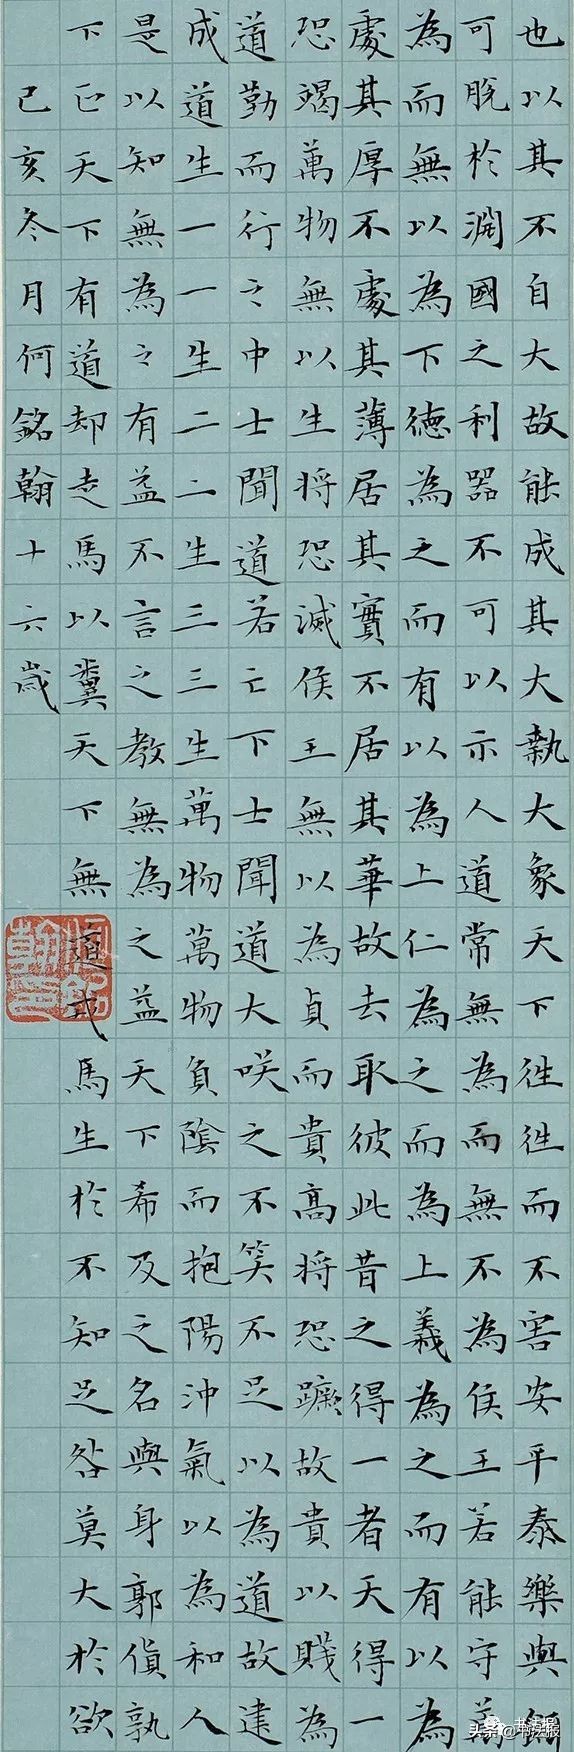 也以其不自大故能成其大執大象天下往往而不害安平泰樂與餌
可脫於淵國之利器不可以示人道常無為而無不為侯王若能守萬
為而無以為下德為之而有以為上仁為之而為上義為之而有以為
處其厚不處其薄居其實不居其華故去取彼此昔之得一者天得一
恐竭萬物無以生將恐滅侯王無以為貞而貴高將恐蹶故貴以賤為
道勤而行之中士聞道若亡下士聞道大咲之不笑不足以為道故建
成道生一一生二二生三三生萬物萬物負陰而抱陽沖氣以為和人
是以知無為之有益不言之教無為之益天下希及之名與身郭貨孰
下正天下有道却走馬以糞天下無道戎馬生於不知足咎莫大於欲
己亥冬月何銘翰十六歲
何銘翰印
头条 @书法报